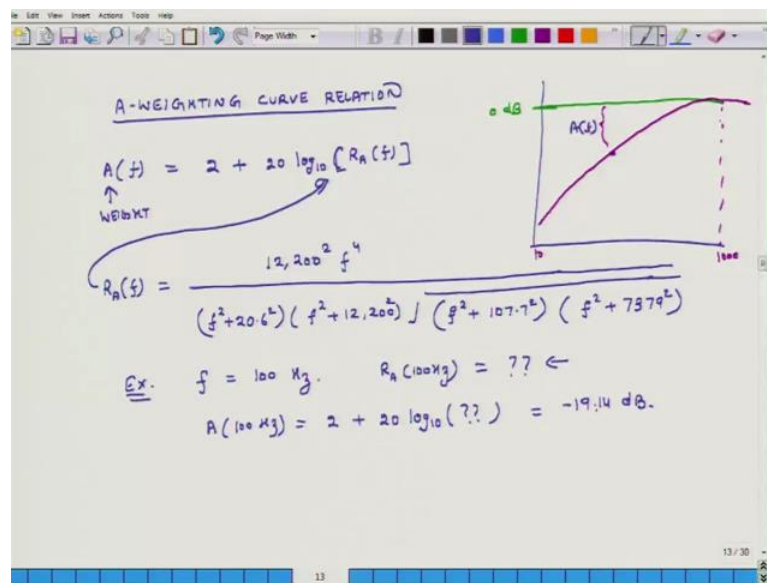 Edit View Insert Actions Tools Help
Page Width
B I
A-WEIGHTING CURVE RELATION
A(f) = 2 + 20 log10 [RA(f)]
↑
WEIGHT
0 dB
A(f)
10
1000
RA(f) = 12,200² f⁴ / (f²+20.6²)(f²+12,200²) √(f²+107.7²)(f²+7379²)
Ex. f = 100 Hz. RA(100Hz) = ?? ←
A(100 Hz) = 2 + 20 log10(??) = -19.14 dB.
13 / 30
13